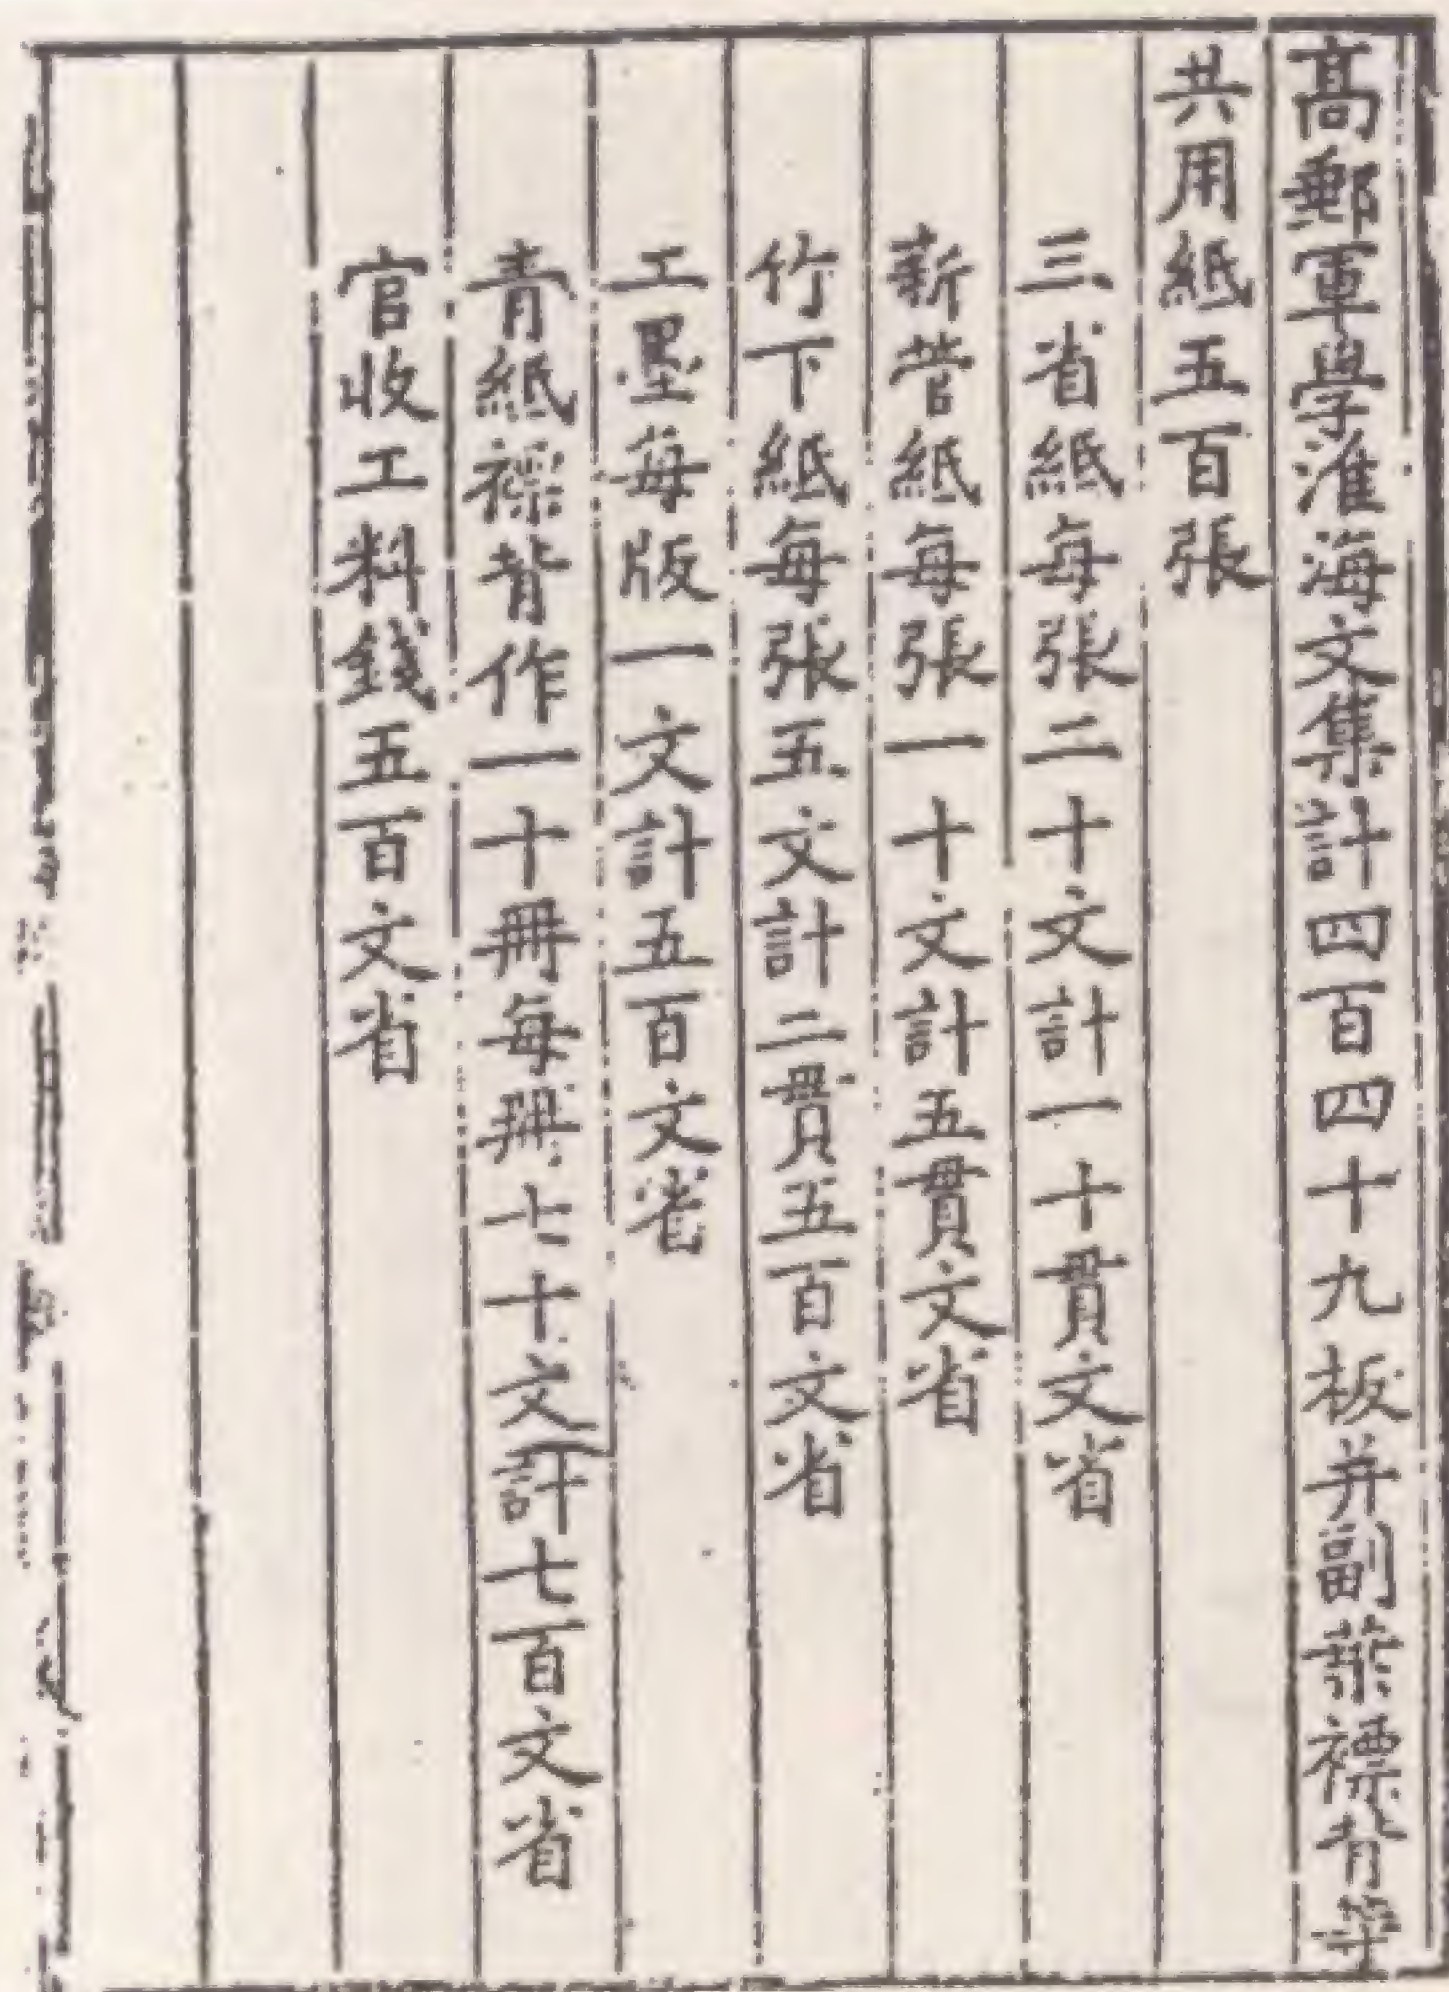 高郵軍學淮海文集計四百四十九板并副葉褾背等
共用紙五百張
三省紙每張二十文計一十貫文省
新管紙每張一十文計五貫文省
竹下紙每張五文計二貫五百文省
工墨每版一文計五百文省
青紙褾背作一十冊每冊七十文計七百文省
官收工料錢五百文省